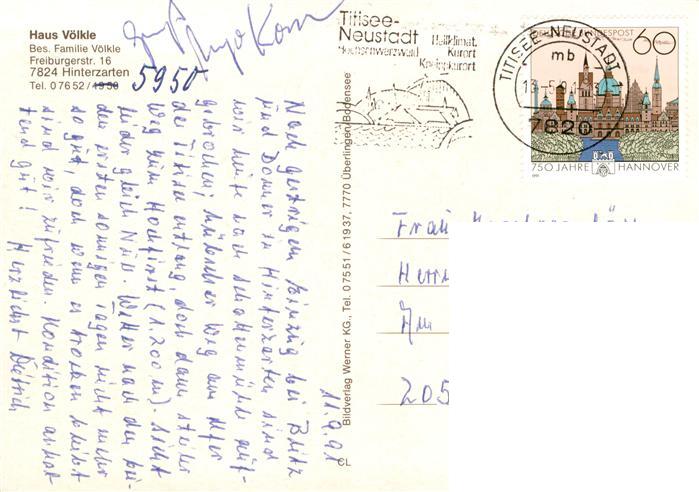 Haus Völkle
Bes. Familie Völkle
Freiburgerstr. 16
7824 Hinterzarten
Tel. 07652/1950
5950
Gruß Ingo Korn
Titisee-
Neustadt
Hochschwarzwald
Heilklimat.
Kurort
Kneippkurort
TITISEE-NEUSTADT 1
mb
13.-5.91
7820
DEUTSCHE BUNDESPOST
60
750 JAHRE HANNOVER
11.5.91
Nach gestrigem Einzug bei Blitz
und Donner in Hinterzarten sind
wir heute nach Schattenmühle auf-
gebrochen; hübscher Weg am Ufer
des Titisee entlang, doch dann steiler
Weg zum Hochfirst (1.200 m). Sicht
leider gleich Null. Wetter nach den bei-
den ersten sonnigen Tagen nicht mehr
so gut, doch wenn es trocken bleibt
sind wir zufrieden. Kondition anhal-
tend gut!
Herzlichst Dietrich
Bildverlag Werner KG., Tel. 07551/61937, 7770 Überlingen/Bodensee
CL
Frau
Herrn
Am
205